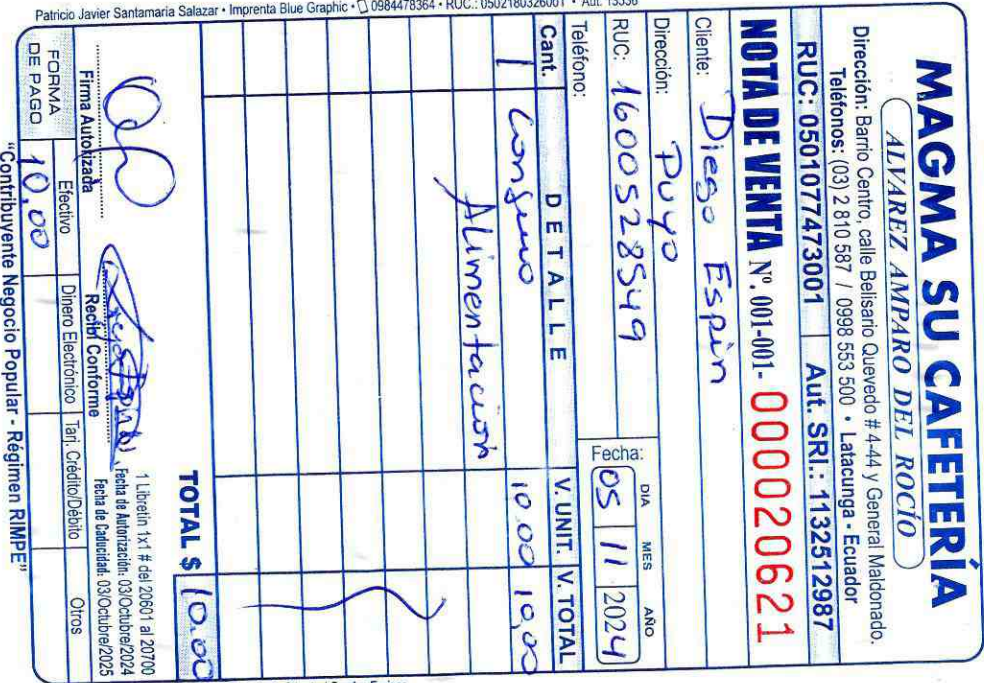 MAGMA SU CAFETERÍA
ALVAREZ AMPARO DEL ROCÍO
Dirección: Barrio Centro, calle Belisario Quevedo # 4-44 y General Maldonado.
Teléfonos: (03) 2 810 587 / 0998 553 500 • Latacunga - Ecuador
RUC: 0501077473001 Aut. SRI.: 1132512987
NOTA DE VENTA Nº. 001-001- 000020621
Cliente: Diego Espin
Dirección: Puyo
RUC: 1600528549
Teléfono:
Fecha: DIA MES AÑO
05 11 2024
Cant. DETALLE V. UNIT. V. TOTAL
1 Consumo 10.00 10,00
Alimentación
TOTAL $ 10.00
Firma Autorizada
Recibí Conforme
1 Libretín 1x1 # del 20601 al 20700
Fecha de Autorización: 03/Octubre/2024
Fecha de Caducidad: 03/Octubre/2025
FORMA DE PAGO
Efectivo Dinero Electrónico Tarj. Crédito/Débito Otros
10,00
"Contribuyente Negocio Popular - Régimen RIMPE"
Patricio Javier Santamaria Salazar • Imprenta Blue Graphic • 0984478364 • RUC.: 0502180326001 • Aut. 13336